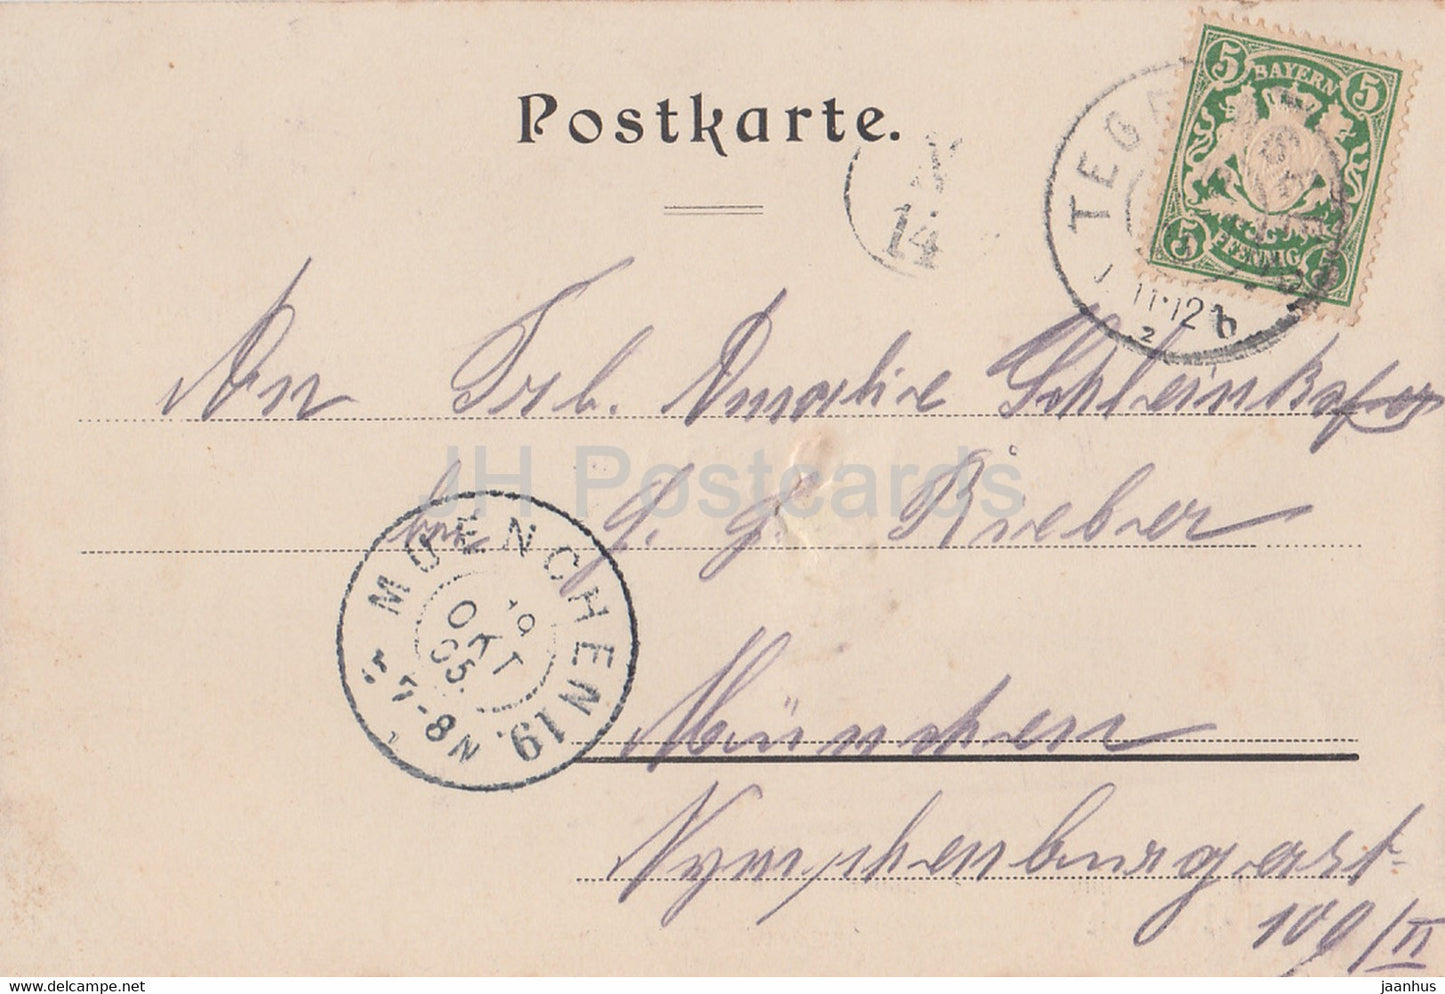 Postkarte.
BAYERN
5 5
5 5
PFENNIG
TEGE
11-12
2
14
An Frl. Amalie Schleinkofer
bei
Rieber
JH Postcards
MUENCHEN 19.
19
OKT
05.
7-8 N
München
Nymphenburgerst
109/II
www.delcampe.net
jaanhus